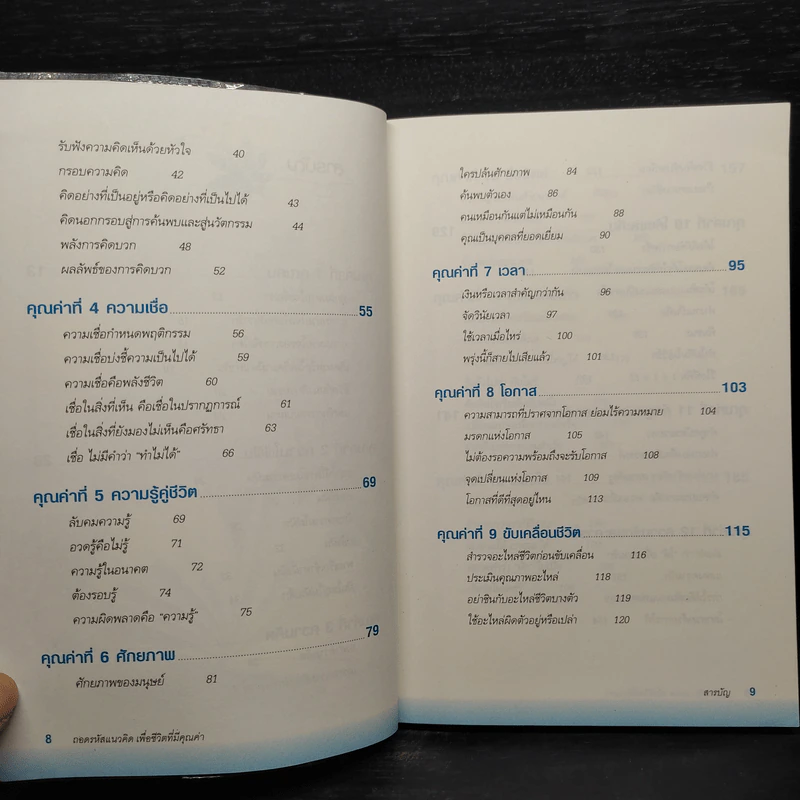 รับฟังความคิดเห็นด้วยหัวใจ 40
กรอบความคิด 42
คิดอย่างที่เป็นอยู่หรือคิดอย่างที่เป็นไปได้ 43
คิดนอกกรอบสู่การค้นพบและสู่นวัตกรรม 44
พลังการคิดบวก 48
ผลลัพธ์ของการคิดบวก 52
คุณค่าที่ 4 ความเชื่อ 55
ความเชื่อกำหนดพฤติกรรม 56
ความเชื่อบ่งชี้ความเป็นไปได้ 59
ความเชื่อคือพลังชีวิต 60
เชื่อในสิ่งที่เห็น คือเชื่อในปรากฏการณ์ 61
เชื่อในสิ่งที่ยังมองไม่เห็นคือศรัทธา 63
เชื่อ ไม่มีคำว่า "ทำไม่ได้" 66
คุณค่าที่ 5 ความรู้คู่ชีวิต 69
ลับคมความรู้ 69
อวดรู้คือไม่รู้ 71
ความรู้ในอนาคต 72
ต้องรอบรู้ 74
ความผิดพลาดคือ "ความรู้" 75
คุณค่าที่ 6 ศักยภาพ 79
ศักยภาพของมนุษย์ 81
8 ถอดรหัสแนวคิด เพื่อชีวิตที่มีคุณค่า
ใครปล้นศักยภาพ 84
ค้นพบตัวเอง 86
คนเหมือนกันแต่ไม่เหมือนกัน 88
คุณเป็นบุคคลที่ยอดเยี่ยม 90
คุณค่าที่ 7 เวลา 95
เงินหรือเวลาสำคัญกว่ากัน 96
จัดวินัยเวลา 97
ใช้เวลาเมื่อไหร่ 100
พรุ่งนี้ก็สายไปเสียแล้ว 101
คุณค่าที่ 8 โอกาส 103
ความสามารถที่ปราศจากโอกาส ย่อมไร้ความหมาย 104
มรดกแห่งโอกาส 105
ไม่ต้องรอความพร้อมถึงจะรับโอกาส 108
จุดเปลี่ยนแห่งโอกาส 109
โอกาสที่ดีที่สุดอยู่ไหน 113
คุณค่าที่ 9 ขับเคลื่อนชีวิต 115
สำรวจอะไหล่ชีวิตก่อนขับเคลื่อน 116
ประเมินคุณภาพอะไหล่ 118
อย่าชินกับอะไหล่ชีวิตบางตัว 119
ใช้อะไหล่ผิดตัวอยู่หรือเปล่า 120
สารบัญ 9